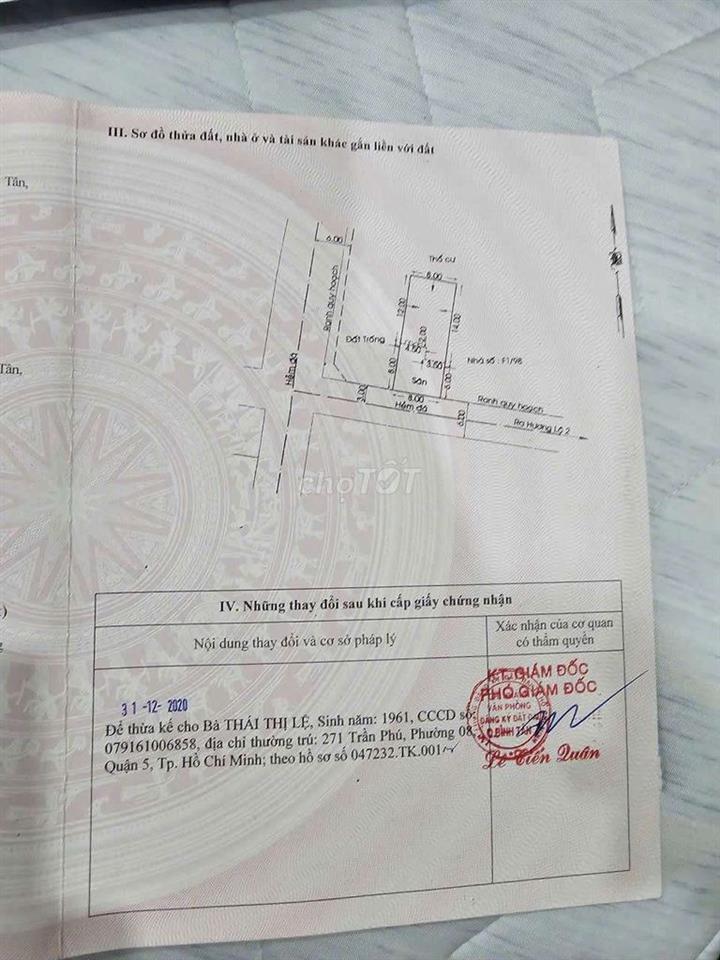 III. Sơ đồ thửa đất, nhà ở và tài sản khác gắn liền với đất
Tân,
Tân,
6.00
Ranh quy hoạch
Hẻm đá
Thổ cư
8.00
12.00
14.00
12.00
Đất Trống
4.50
3.50
8.00
6.00
Nhà số : F1/9B
Sân
3.00
8.00
Hẻm đá
6.00
Ranh quy hoạch
Ra Hương Lộ 2
chợTỐT
IV. Những thay đổi sau khi cấp giấy chứng nhận
Nội dung thay đổi và cơ sở pháp lý
Xác nhận của cơ quan
có thẩm quyền
31 -12- 2020
Để thừa kế cho Bà THÁI THỊ LỆ, Sinh năm: 1961, CCCD số:
079161006858, địa chỉ thường trú: 271 Trần Phú, Phường 08,
Quận 5, Tp. Hồ Chí Minh; theo hồ sơ số 047232.TK.001
KT.GIÁM ĐỐC
PHÓ GIÁM ĐỐC
VĂN PHÒNG
ĐĂNG KÝ ĐẤT ĐAI
Q.BÌNH TÂN
Lê Tiến Quân